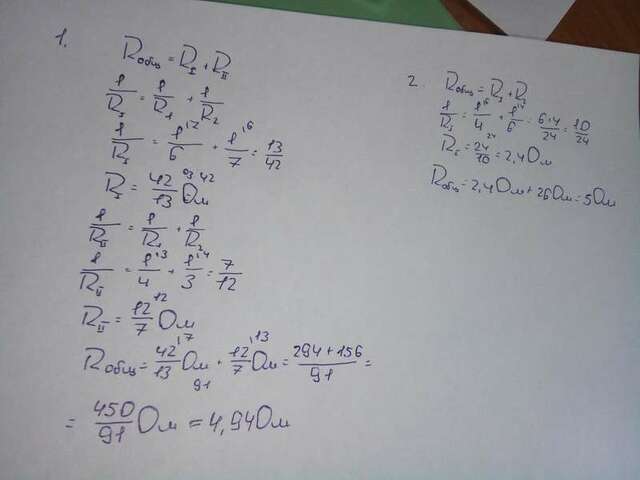 1.
Rобщ = R_I + R_II
1/R_I = 1/R_1 + 1/R_2
1/R_I = 1/6 \7 + 1/7 \6 = 13/42
R_I = 42/13 Ом
1/R_II = 1/R_1 + 1/R_2
1/R_II = 1/4 \3 + 1/3 \4 = 7/12
R_II = 12/7 Ом
Rобщ = 42/13 \7 Ом + 12/7 \13 Ом = 294+156/91 =
91
= 450/91 Ом = 4,94 Ом
2. Rобщ = R_I + R
1/R_I = 1/4 \6 + 1/6 \4 = 6+4/24 = 10/24
24
R_I = 24/10 = 2,4 Ом
Rобщ = 2,4 Ом + 26 Ом = 5 Ом